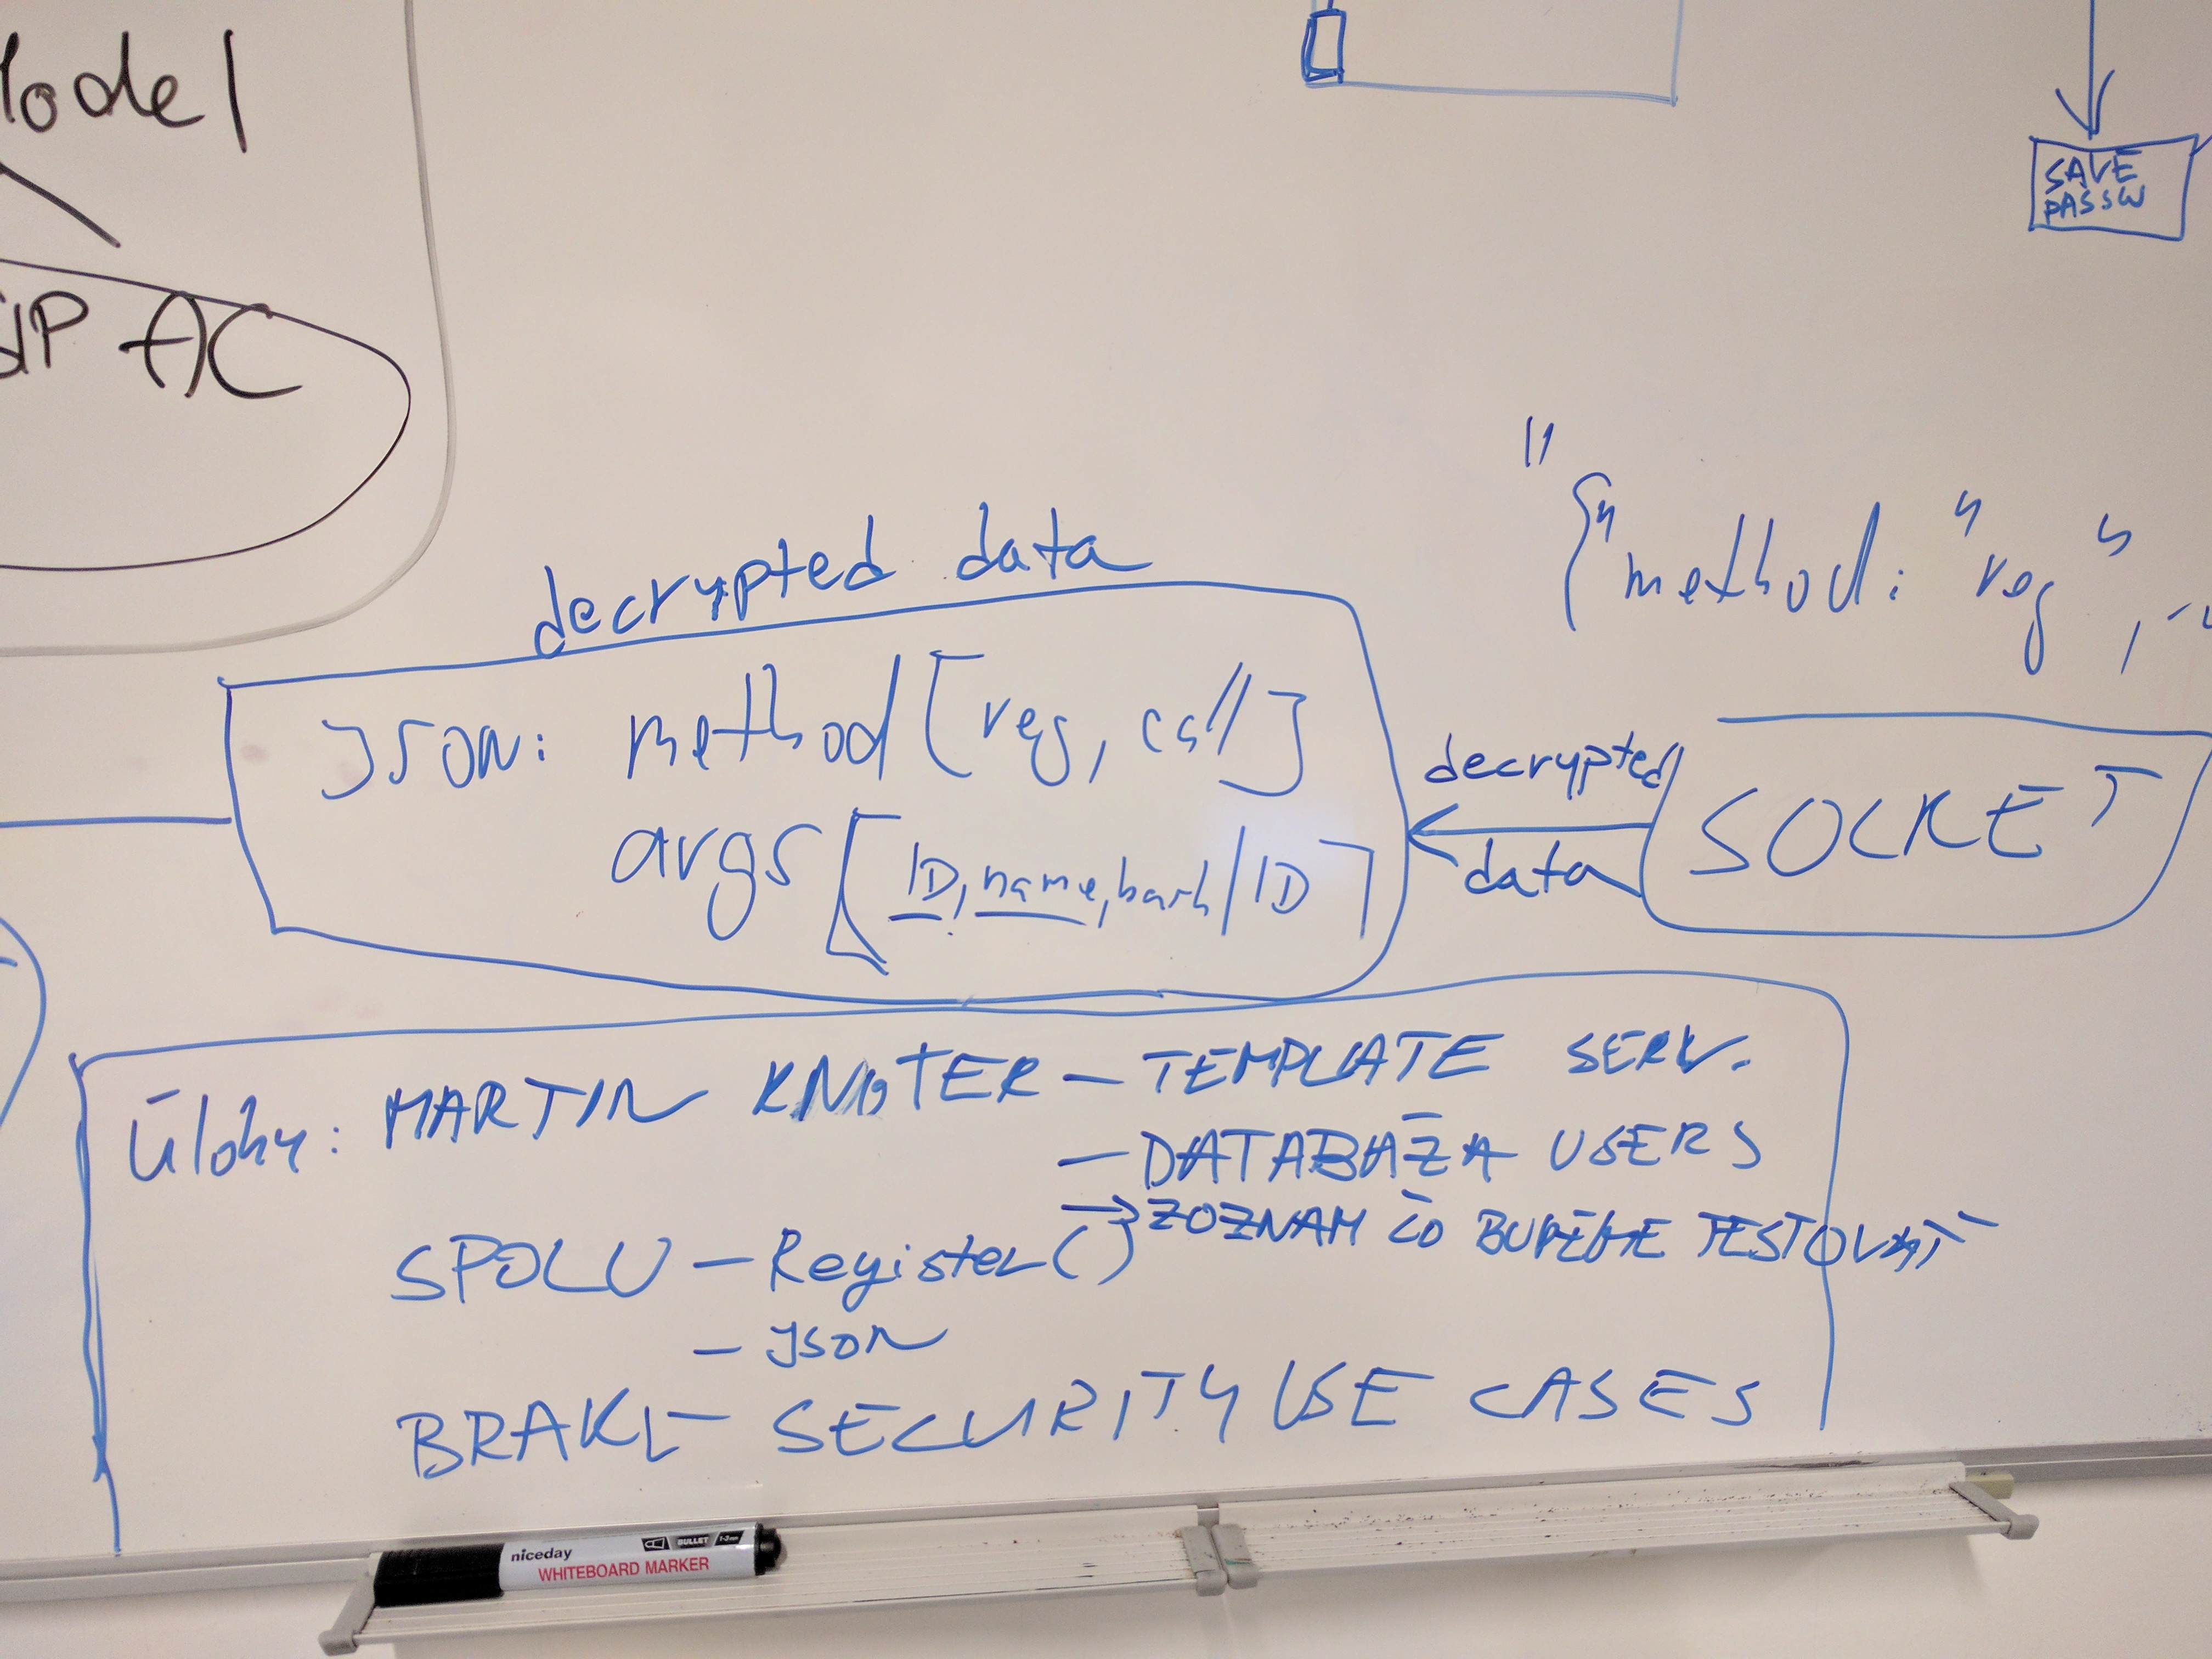 SAVE
PASSW
AC
"
{"method:" "reg",
decrypted data
JSON: method [reg, call]
args [ID, name, hash/ID]
decrypted
data
SOCKET
Úlohy: MARTIN – TEMPLATE SERV.
– DATABÁZA USERS
→ ZOZNAM ČO BUDEME TESTOVAŤ
SPOLU – Register()
– Json
– SECURITY USE CASES
niceday
WHITEBOARD MARKER
BULLET